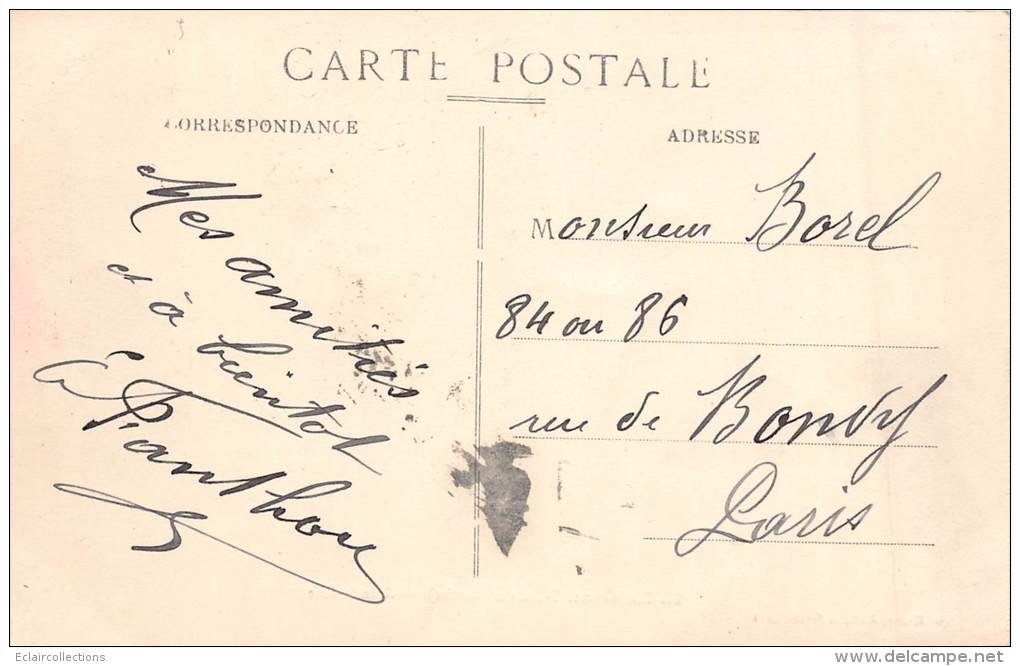 CARTE POSTALE
CORRESPONDANCE
ADRESSE
Mes amitiés
et à bientôt
Monsieur Borel
84 ou 86
rue de Bondy
Paris
Eclaircollections
www.delcampe.net